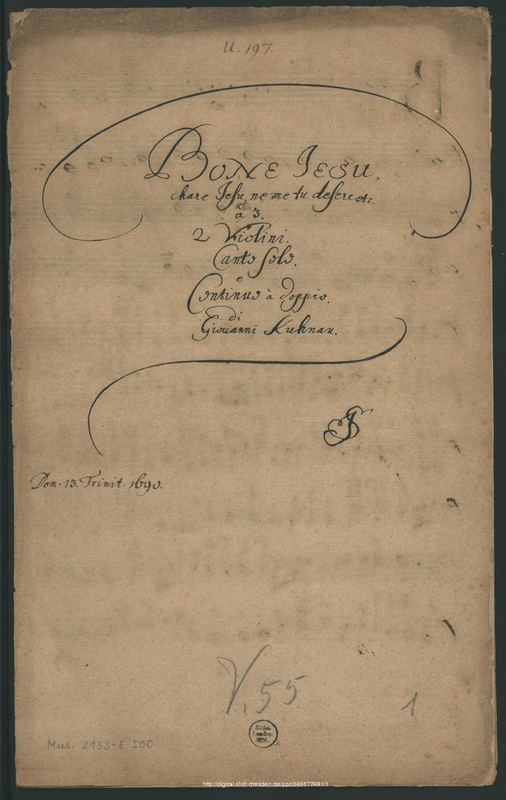 U. 197.
BONE IESU,
chare Jesu, ne me tu deserē etc.
à 3.
2 Violini.
Canto solo.
e
Continuo à doppio.
di
Giovanni Kuhnau.
Dom. 13. Trinit. 1690.
V. 55
1
Sächs.
Landes-
Bibl.
Mus. 2133-E-500
http://digital.slub-dresden.de/ppn349877491/1